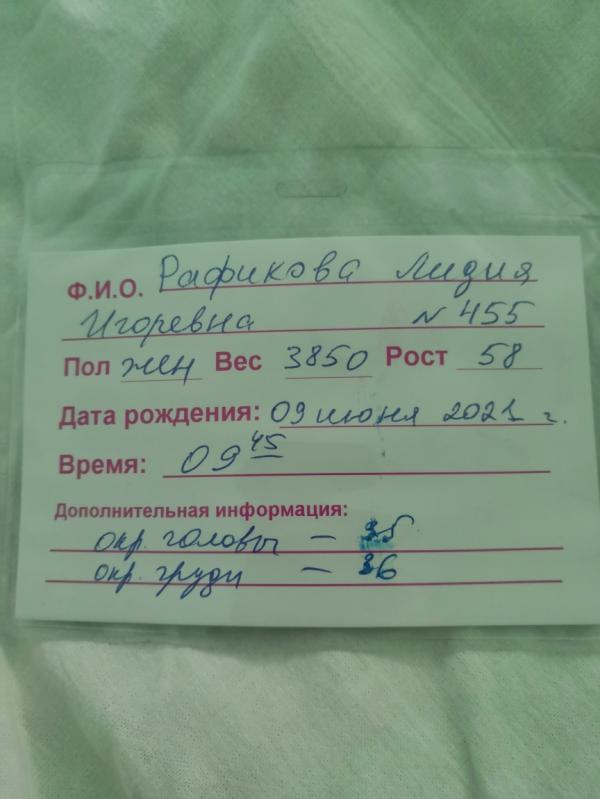 Ф.И.О. Рафикова Лидия
Игоревна N 455
Пол жен Вес 3850 Рост 58
Дата рождения: 09 июня 2021 г.
Время: 09 45
Дополнительная информация:
окр. головы — 35
окр. груди — 36